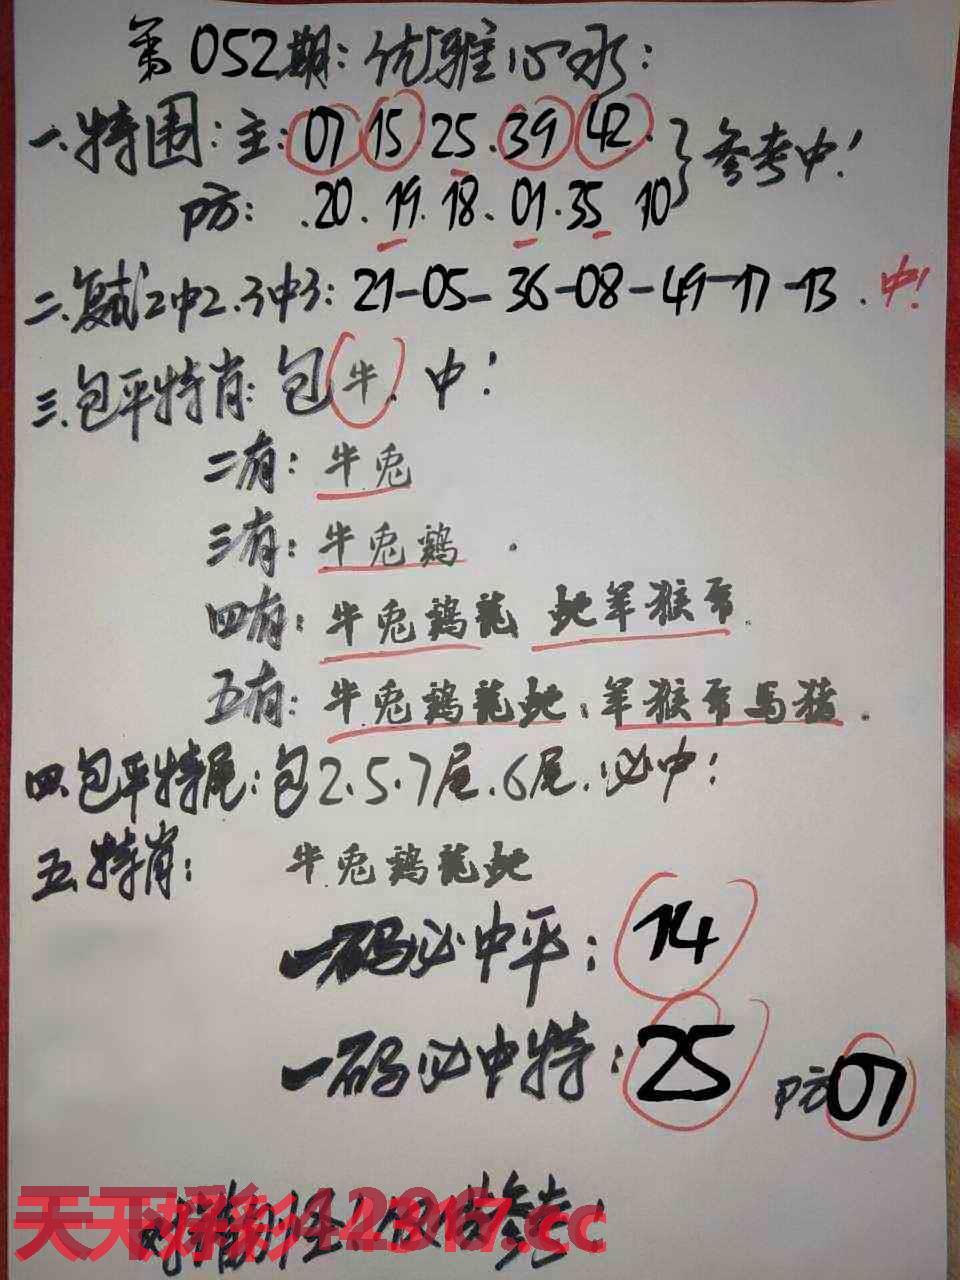 第052期:优雅心水:
一.特围:主:07 15.25.39 42.
防:.20.19.18.01.35 10 } 参考中!
二.复试2中2.3中3:21-05-36-08-49-17-13.中!
三.包平特肖:包牛.中!
二有:牛兎
三有:牛兎鷄.
四有:牛兎鷄龍 蛇羊猴
五有:牛兎鷄龍蛇:羊猴 馬猪.
四.包平特尾:包2.5.7尾.6尾.必中!
五.特肖: 牛兎鷄龍蛇
一码必中平:14
一码必中特:25 防07
天下彩 .cc
参考!